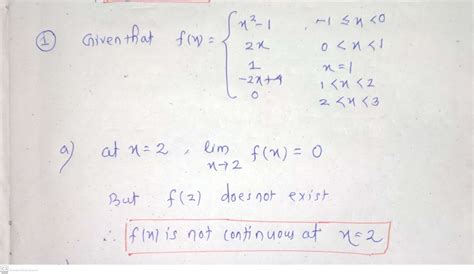 ① Given that f(x) = { x²-1 , -1 ≤ x < 0
2x 0 < x < 1
1 x = 1
-2x+4 1 < x < 2
0 2 < x < 3
a) at x = 2 , lim x→2 f(x) = 0
But f(2) does not exist
∴ f(x) is not continuous at x = 2